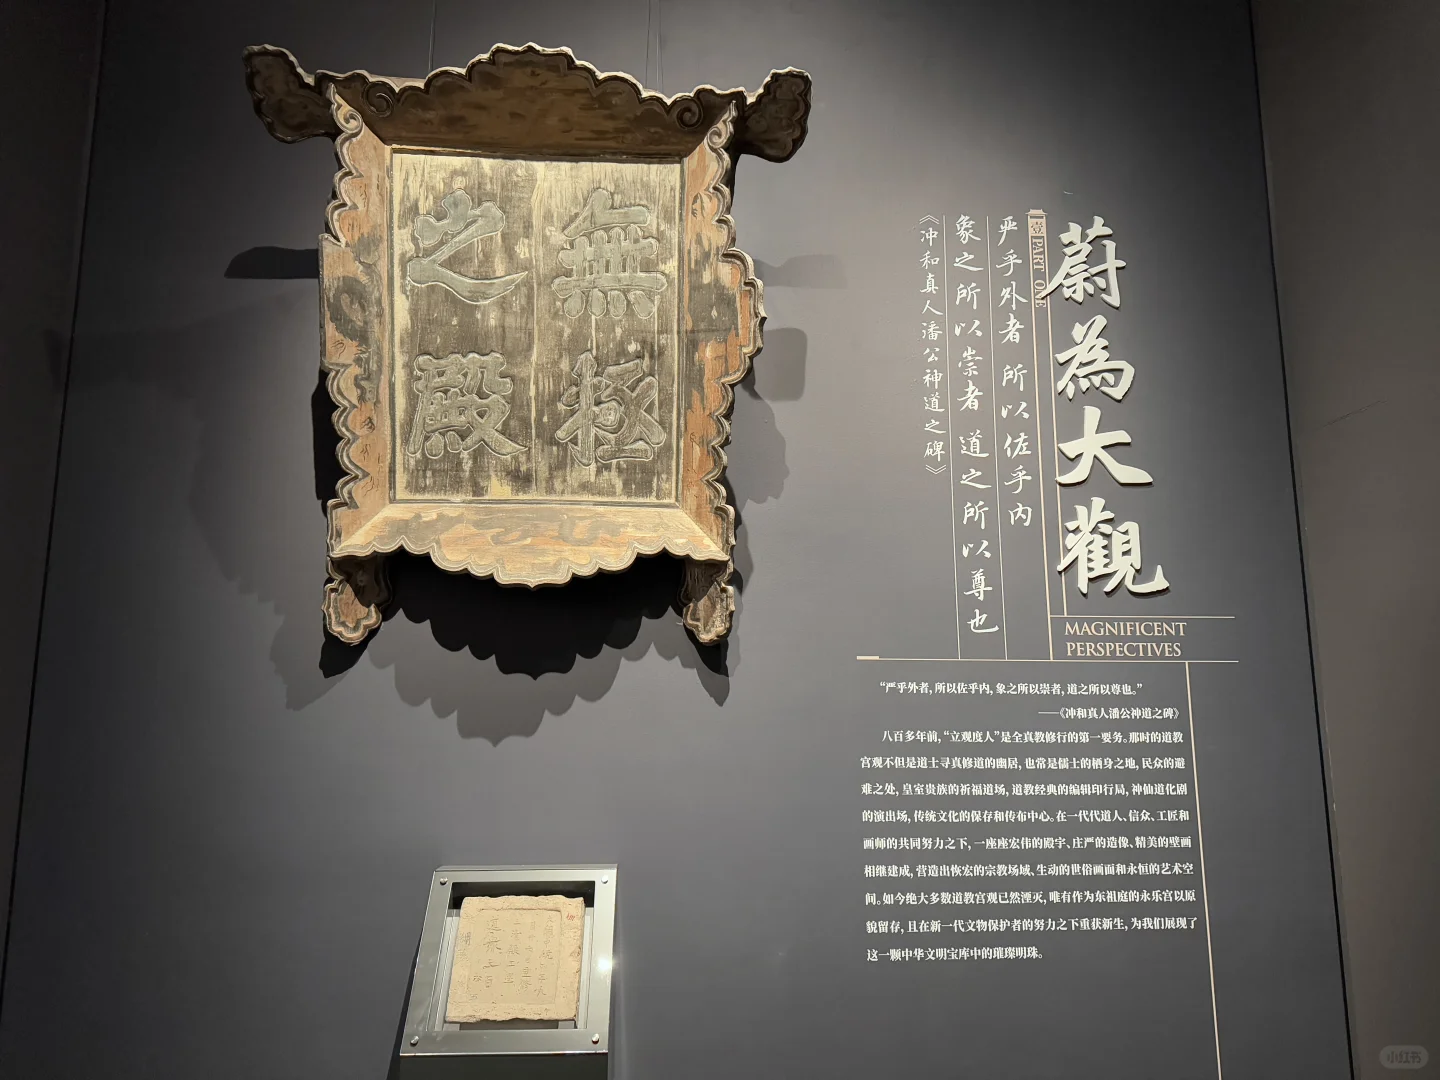 無極
之殿
蔚為大觀
壹 PART ONE
严乎外者 所以佐乎内
象之所以崇者 道之所以尊也
《冲和真人潘公神道之碑》
MAGNIFICENT
PERSPECTIVES
“严乎外者，所以佐乎内，象之所以崇者，道之所以尊也。”
——《冲和真人潘公神道之碑》
八百多年前，“立观度人”是全真教修行的第一要务。那时的道教
宫观不但是道士寻真修道的幽居，也常是儒士的栖身之地，民众的避
难之处，皇室贵族的祈福道场，道教经典的编辑印行局，神仙道化剧
的演出场，传统文化的保存和传布中心。在一代代道人、信众、工匠和
画师的共同努力之下，一座座宏伟的殿宇、庄严的造像、精美的壁画
相继建成，营造出恢宏的宗教场域、生动的世俗画面和永恒的艺术空
间。如今绝大多数道教宫观已然湮灭，唯有作为东祖庭的永乐宫以原
貌留存，且在新一代文物保护者的努力之下重获新生，为我们展现了
这一颗中华文明宝库中的璀璨明珠。
小红书